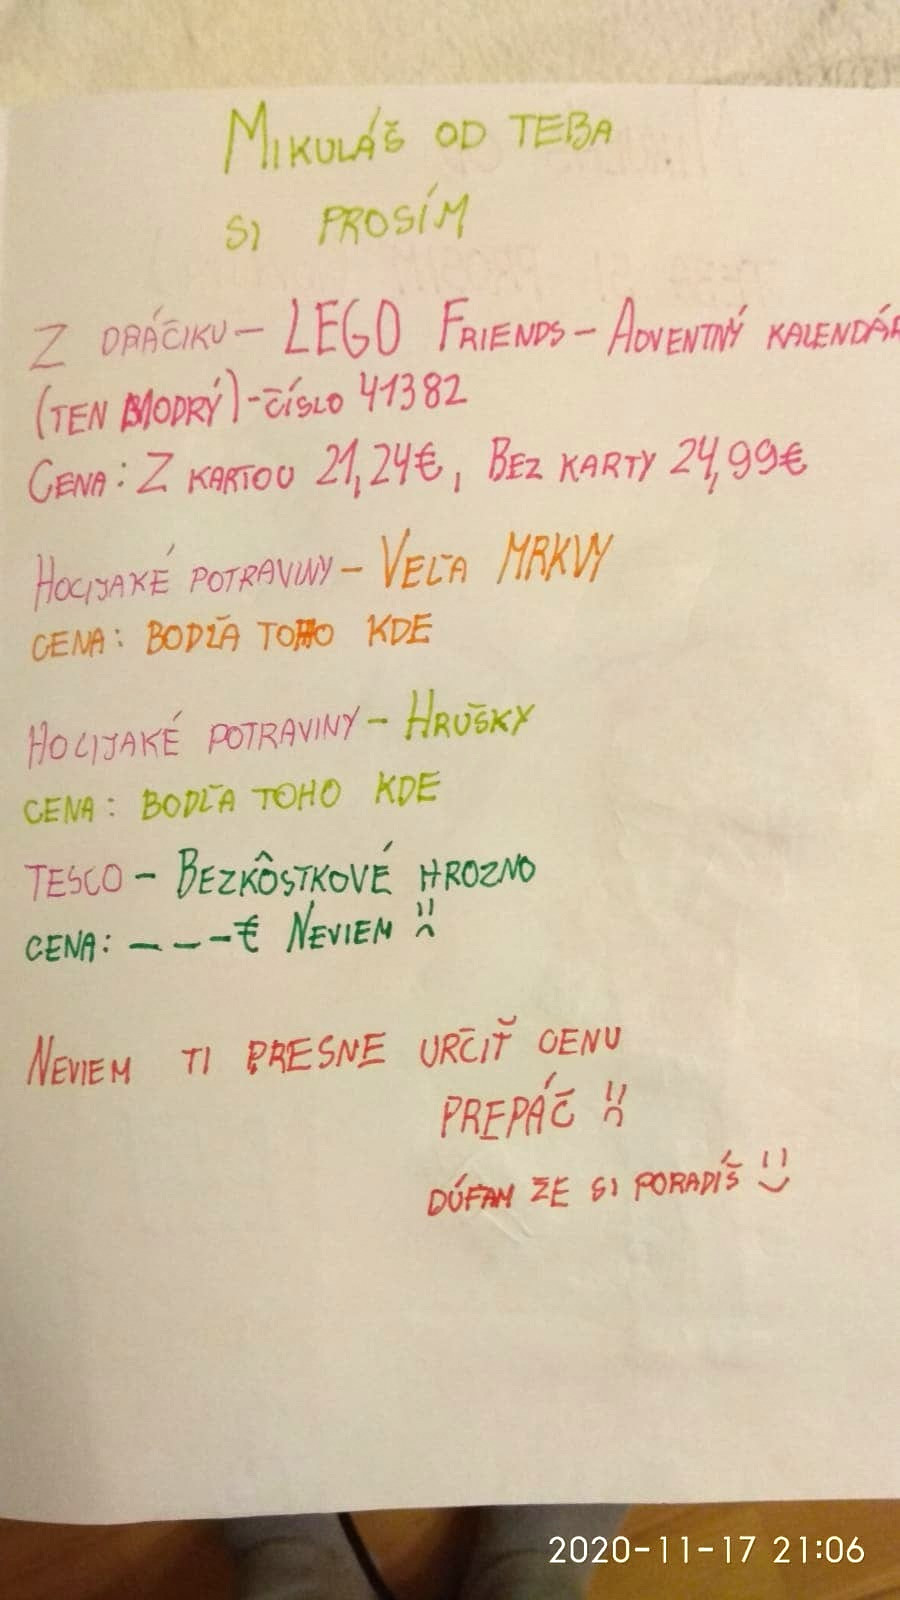 MIKULÁŠ OD TEBA
SI PROSÍM
Z DRÁČIKU – LEGO FRIENDS – ADVENTNÝ KALENDÁR
(TEN MODRÝ) - ČÍSLO 41382
CENA: Z KARTOU 21,24€, BEZ KARTY 24,99€
HOCIJAKÉ POTRAVINY – VEĽA MRKVY
CENA: BODĽA TOHO KDE
HOCIJAKÉ POTRAVINY – HRUŠKY
CENA: BODĽA TOHO KDE
TESCO – BEZKÔSTKOVÉ HROZNO
CENA: – – –€ NEVIEM :(
NEVIEM TI PRESNE URČIŤ CENU
PREPÁČ :(
DÚFAM ŽE SI PORADÍŠ :)
2020-11-17 21:06